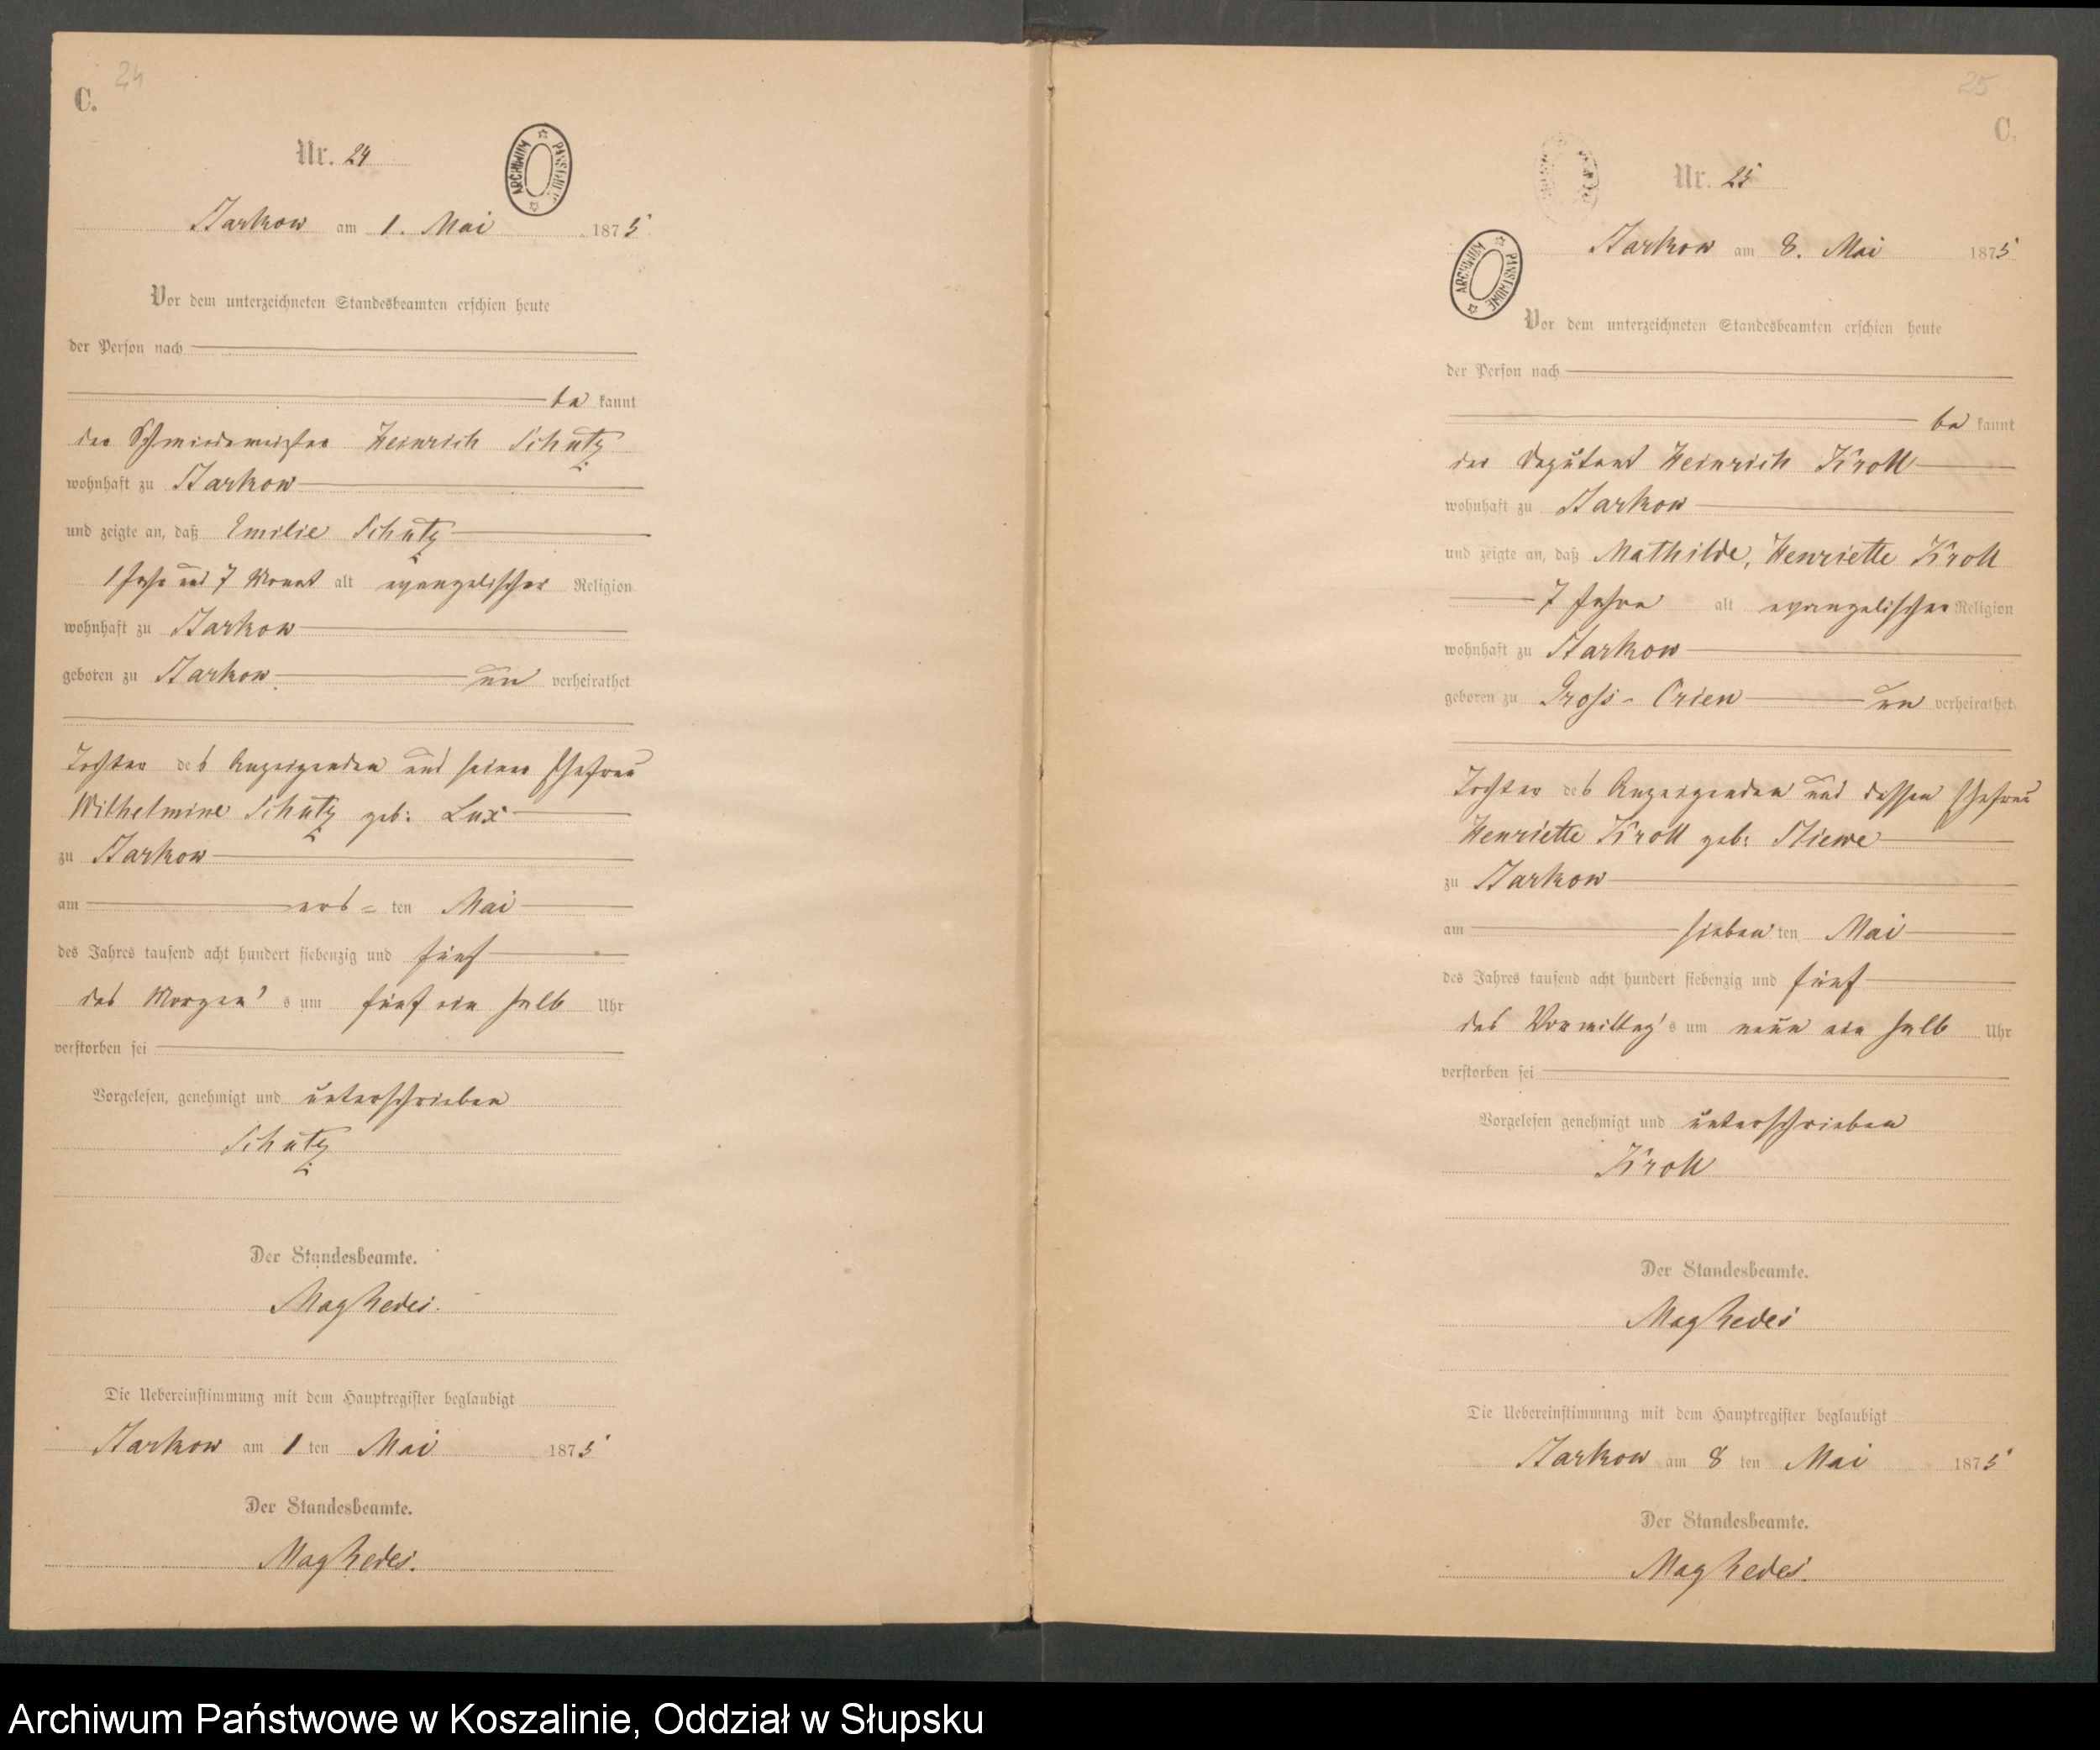 24
C.
Nr. 24
ARCHIWUM PAŃSTWOWE
Starkow am 1. Mai 1875
Vor dem unterzeichneten Standesbeamten erschien heute
der Person nach
be kannt
der Schmiedemeister Heinrich Schütz
wohnhaft zu Starkow
und zeigte an, daß Emilie Schütz
1 Jahr und 7 Monat alt evangelischer Religion
wohnhaft zu Starkow
geboren zu Starkow un verheirathet
Tochter des Anzeigenden und seiner Ehefrau
Wilhelmine Schütz geb: Lux
zu Starkow
am ers= ten Mai
des Jahres tausend acht hundert siebenzig und fünf
des Morgen's um fünf ein halb Uhr
verstorben sei
Vorgelesen, genehmigt und unterschrieben
Schütz
Der Standesbeamte.
Die Uebereinstimmung mit dem Hauptregister beglaubigt
Starkow am 1 ten Mai 1875
Der Standesbeamte.
25
C.
Nr. 25
ARCHIWUM PAŃSTWOWE
Starkow am 8. Mai 1875
Vor dem unterzeichneten Standesbeamten erschien heute
der Person nach
be kannt
der Deputant Heinrich Kroll
wohnhaft zu Starkow
und zeigte an, daß Mathilde, Henriette Kroll
7 Jahre alt evangelischer Religion
wohnhaft zu Starkow
geboren zu Gross- Crien un verheirathet
Tochter des Anzeigenden und dessen Ehefrau
Henriette Kroll geb: Stiewe
zu Starkow
am sieben ten Mai
des Jahres tausend acht hundert siebenzig und fünf
des Vormittag's um neun ein halb Uhr
verstorben sei
Vorgelesen genehmigt und unterschrieben
Kroll
Der Standesbeamte.
Die Uebereinstimmung mit dem Hauptregister beglaubigt
Starkow am 8 ten Mai 1875
Der Standesbeamte.
Archiwum Państwowe w Koszalinie, Oddział w Słupsku